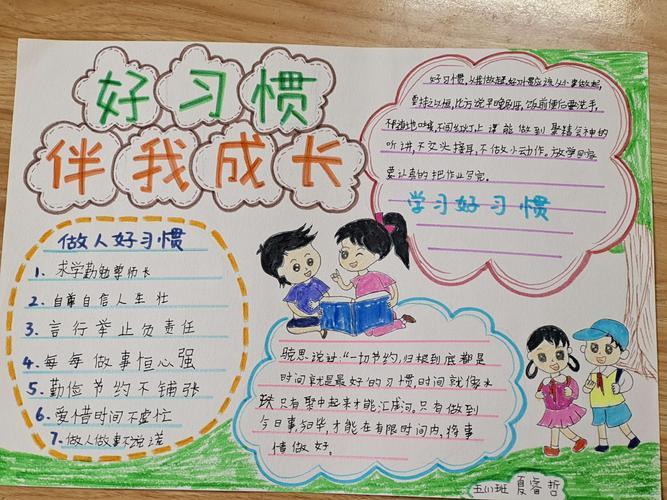 好习惯
伴我成长
做人好习惯
1、求学勤勉尊师长
2、自尊自信人生壮
3、言行举止负责任
4、每每做事恒心强
5、勤俭节约不铺张
6、爱惜时间不虚忙
7、做人做事不说谎
好习惯,从我做起,好习惯应该从小事做起,
要持之以恒,比方说早晚刷牙,饭前便后要洗手,
不随地吐痰,不闯红灯,上课能做到聚精会神的
听讲,不交头接耳,不做小动作。放学回家
要认真的把作业写完。
学习好习惯
说过:“一切节约,归根到底都是
时间就是最好的习惯,时间就像水
只有聚中起来才能汇成河。只有做到
今日事,今日毕,才能在有限时间内,将事
情做好。
五(1)班 夏睿哲